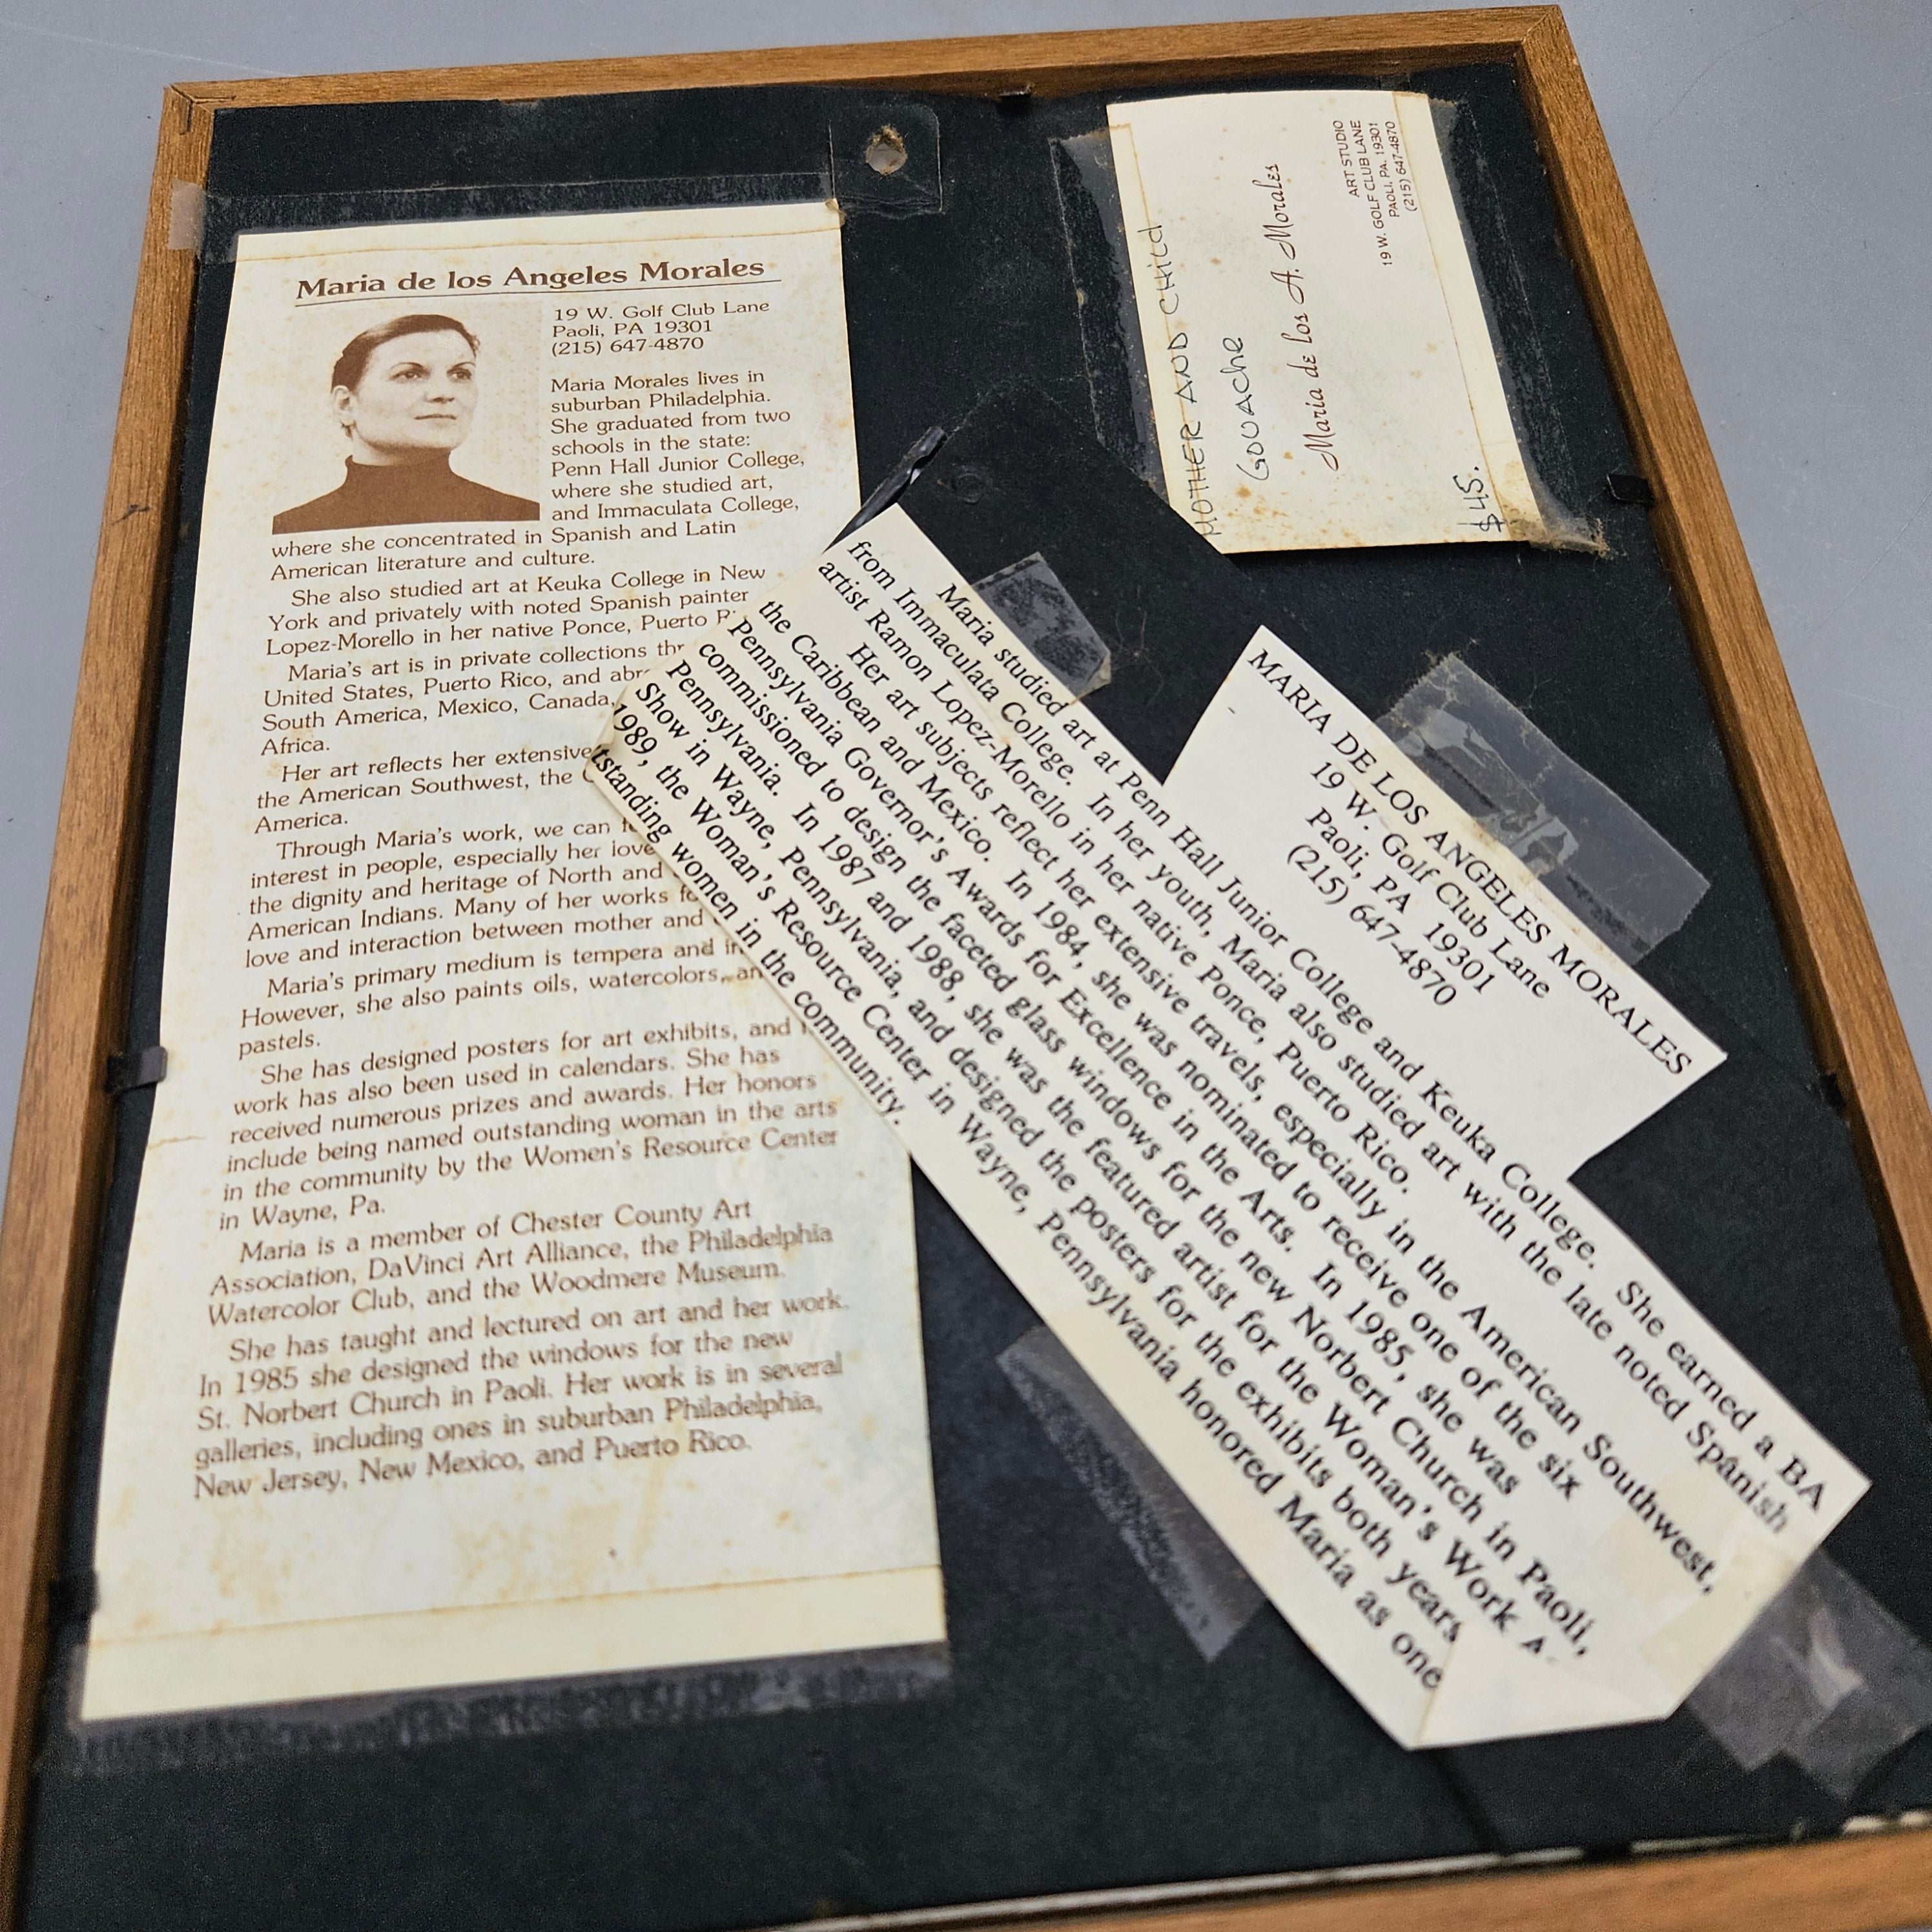 Maria de los Angeles Morales
19 W. Golf Club Lane
Paoli, PA 19301
(215) 647-4870
Maria Morales lives in
suburban Philadelphia.
She graduated from two
schools in the state:
Penn Hall Junior College,
where she studied art,
and Immaculata College,
where she concentrated in Spanish and Latin
American literature and culture.
She also studied art at Keuka College in New
York and privately with noted Spanish painter
Lopez-Morello in her native Ponce, Puerto
Maria's art is in private collections
United States, Puerto Rico, and
South America, Mexico, Canada,
Africa.
Her art reflects her extensive
the American Southwest, the
America.
Through Maria's work, we can
interest in people, especially her love
the dignity and heritage of North and
American Indians. Many of her works
love and interaction between mother and
Maria's primary medium is tempera and
However, she also paints oils, watercolors,
pastels.
She has designed posters for art exhibits, and
work has also been used in calendars. She has
received numerous prizes and awards. Her honors
include being named outstanding woman in the arts
in the community by the Women's Resource Center
in Wayne, Pa.
Maria is a member of Chester County Art
Association, DaVinci Art Alliance, the Philadelphia
Watercolor Club, and the Woodmere Museum.
She has taught and lectured on art and her work.
In 1985 she designed the windows for the new
St. Norbert Church in Paoli. Her work is in several
galleries, including ones in suburban Philadelphia,
New Jersey, New Mexico, and Puerto Rico.
MOTHER AND CHILD
GOUACHE
Maria de los A. Morales
ART STUDIO
19 W. GOLF CLUB LANE
PAOLI, PA. 19301
(215) 647-4870
$45.
MARIA DE LOS ANGELES MORALES
19 W. Golf Club Lane
Paoli, PA 19301
(215) 647-4870
Maria studied art at Penn Hall Junior College and Keuka College. She earned a BA
from Immaculata College. In her youth, Maria also studied art with the late noted Spanish
artist Ramon Lopez-Morello in her native Ponce, Puerto Rico.
Her art subjects reflect her extensive travels, especially in the American Southwest,
the Caribbean and Mexico. In 1984, she was nominated to receive one of the six
Pennsylvania Governor's Awards for Excellence in the Arts. In 1985, she was
commissioned to design the faceted glass windows for the new Norbert Church in Paoli,
Pennsylvania. In 1987 and 1988, she was the featured artist for the Woman's Work
Show in Wayne, Pennsylvania, and designed the posters for the exhibits both years
1989, the Woman's Resource Center in Wayne, Pennsylvania honored Maria as one
tstanding women in the community.